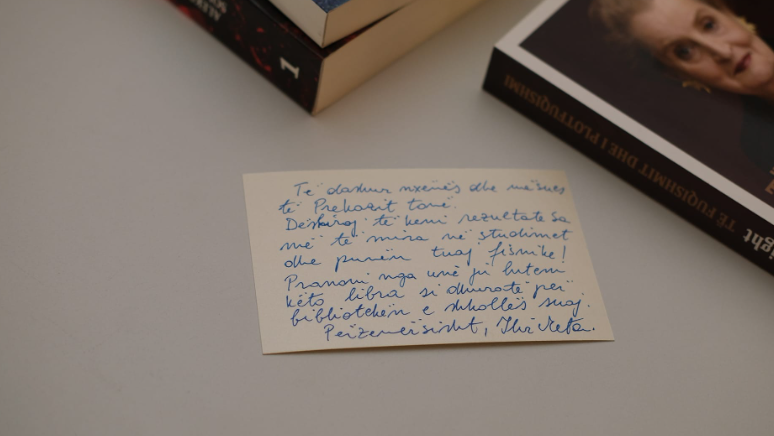 1
TË FUQISHMIT DHE I PLOTFUQISHMI
ight
Të dashur nxënës dhe mësues
të Prekazit tonë.
Dëshiroj të keni rezultate sa
më të mira në studimet
dhe punën tuaj fisnike!
Pranoni nga unë ju lutem
këto libra si dhuratë për
bibliotekën e shkollës suaj.
Përzemërsisht, Ilir Meta.